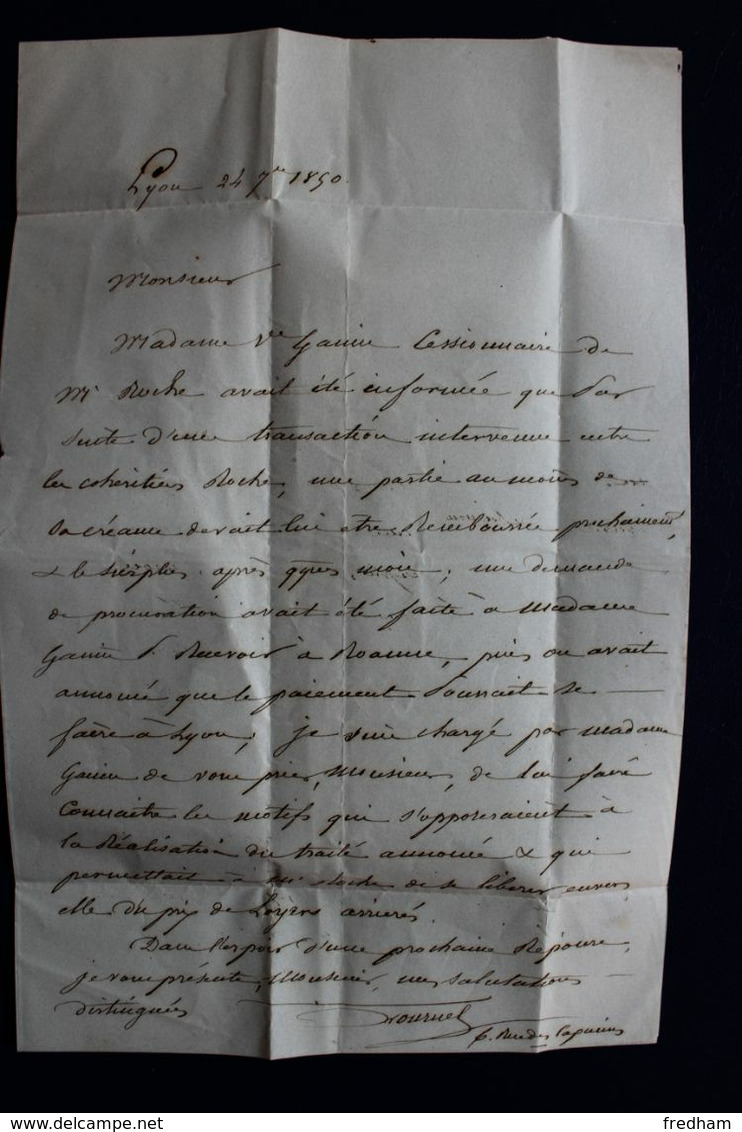 Lyon 24 7bre 1850.
Monsieur
Madame Ve Ganin Cessionnaire de
Mr Roche avait été informée que par
suite d'une transaction intervenue entre
les cohéritiers Roche, une partie au moins de
sa créance devait lui être Remboursée prochainemt,
& le surplus après qques mois, une demande
de procuration avait été faite à Madame
Ganin pr Recevoir à Roanne, puis on avait
annoncé que le paiement pourrait se
faire à Lyon, je suis chargé par Madame
Ganin de vous prier, Monsieur, de lui faire
Connaitre les motifs qui s'opposeraient à
la Réalisation du traité annoncé & qui
permettait à Mr Roche de se libérer envers
elle du prix de Loyers arrierés.
Dans l'espoir d'une prochaine Réponse,
je vous présente, Monsieur, mes salutations
distinguées
Tournel
6. Rue des Capucins
fredham
delcampe.net